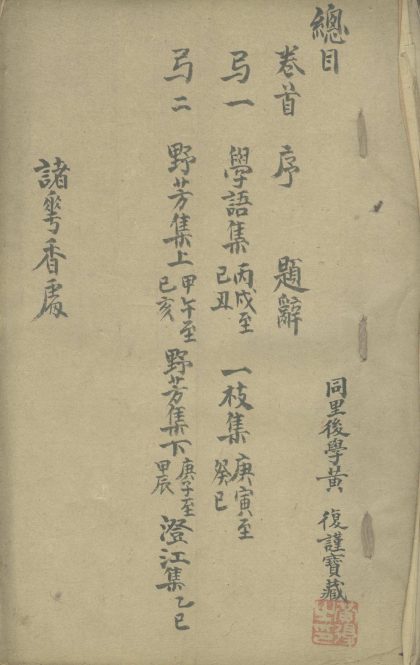 總目
同里後學黃 復謹寶藏
卷首 序 題辭
弓一 學語集 丙戌至己丑 一枝集 庚寅至癸巳
弓二 野芳集上 甲午至己亥 野芳集下 庚子至甲辰 澄江集 乙巳
諸華香處